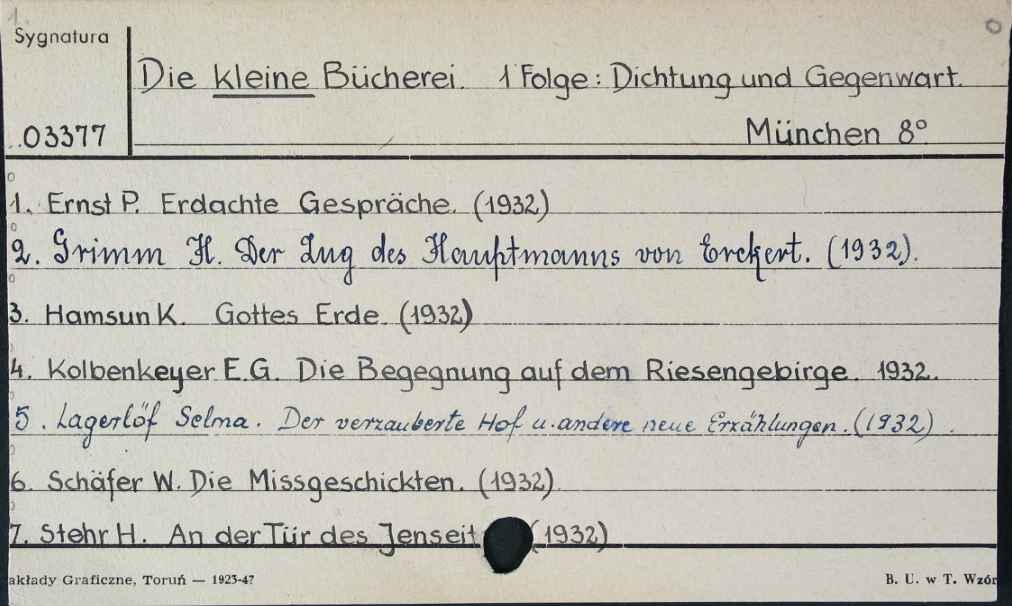 1.
Sygnatura
Die kleine Bücherei. 1 Folge: Dichtung und Gegenwart.
..03377
München 8°
1. Ernst P. Erdachte Gespräche. (1932)
2. Grimm H. Der Zug des Hauptmanns von Erckert. (1932).
3. Hamsun K. Gottes Erde. (1932)
4. Kolbenkeyer E.G. Die Begegnung auf dem Riesengebirge. 1932.
5. Lagerlöf Selma. Der verzauberte Hof u. andere neue Erzählungen. (1932).
6. Schäfer W. Die Missgeschickten. (1932)
7. Stehr H. An der Tür des Jenseit (1932)
akłady Graficzne, Toruń — 1923-47
B. U. w T. Wzór